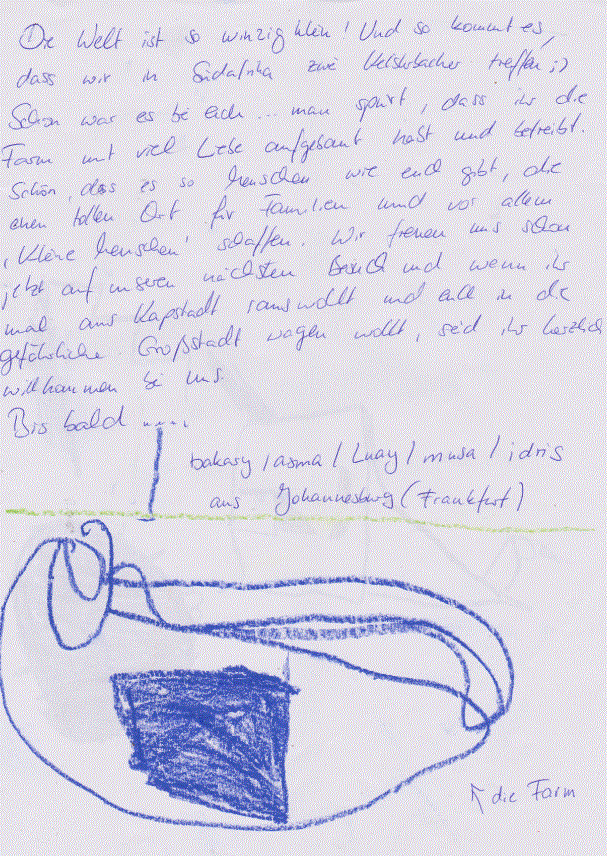 Die Welt ist so winzig klein! Und so kommt es,
dass wir in Südafrika zwei Kelsterbacher treffen ;)
Schön war es bei euch ... man spürt, dass ihr die
Farm mit viel Liebe aufgebaut habt und betreibt.
Schön, dass es so Menschen wie euch gibt, die
einen tollen Ort für Familien und vor allem
"kleine Menschen" schaffen. Wir freuen uns schon
jetzt auf unseren nächsten Besuch und wenn ihr
mal aus Kapstadt raus wollt und euch in die
gefährliche Großstadt wagen wollt, seid ihr herzlich
willkommen bei uns.
Bis bald ....
bakary / asma / Luay / musa / idris
aus Johannesburg (Frankfurt)
die Farm